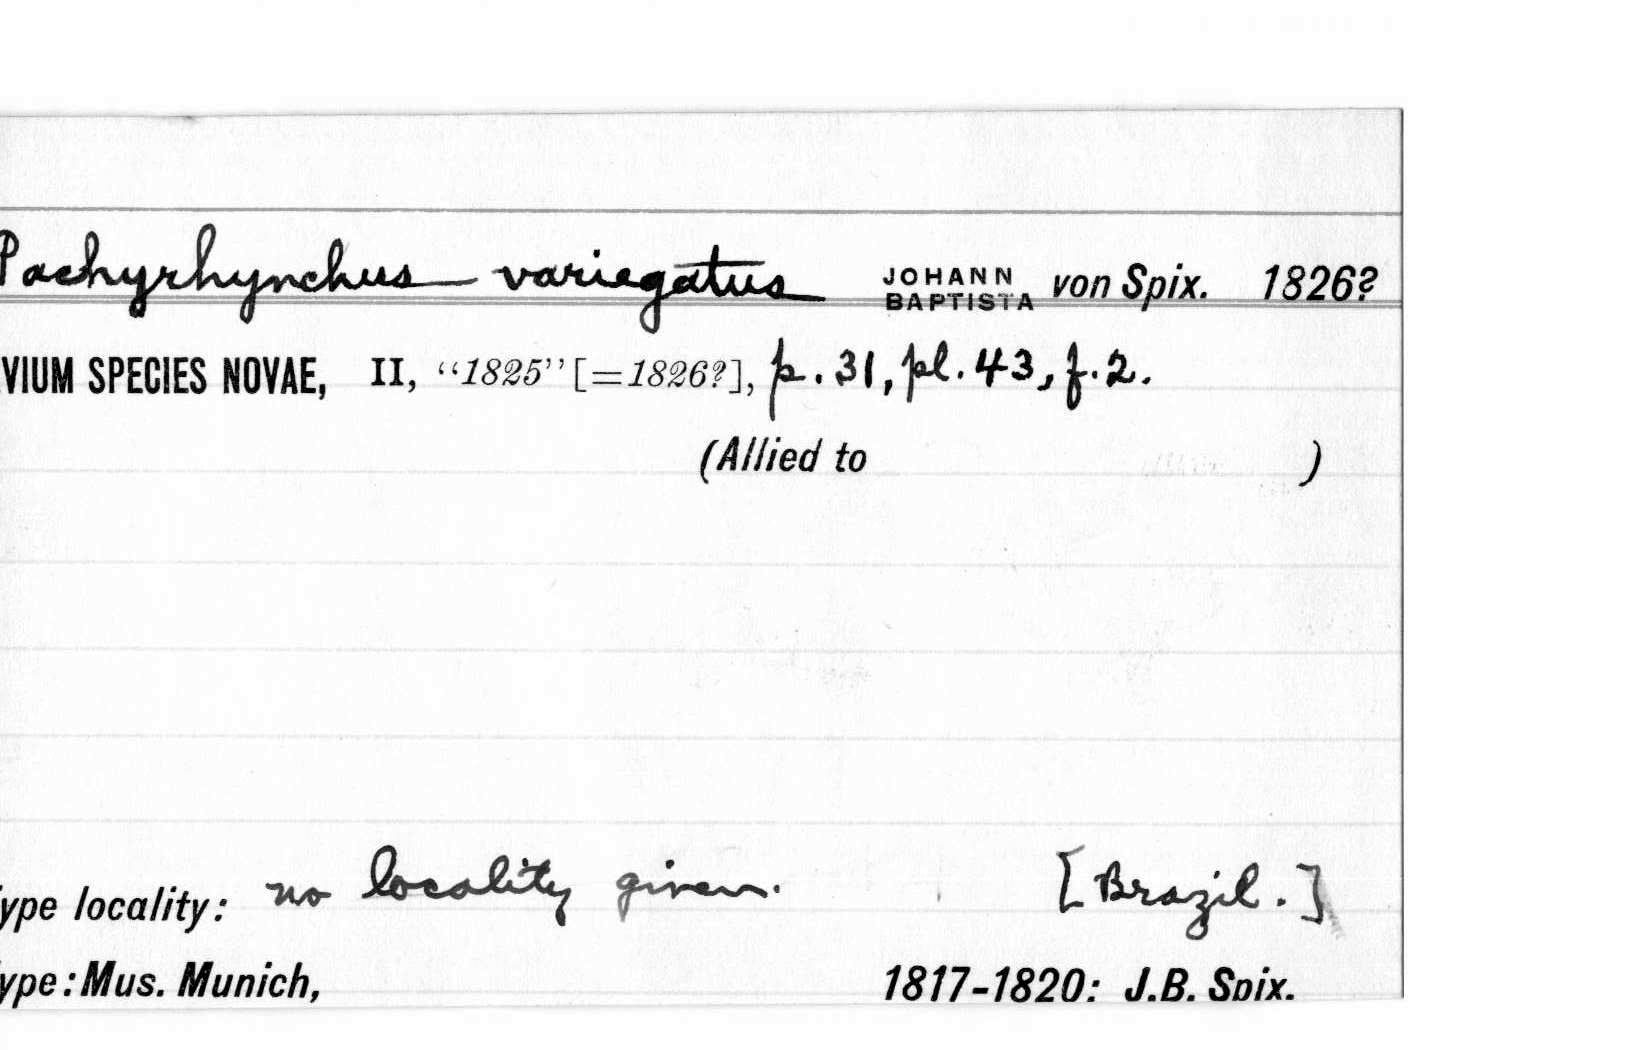 Pachyrhynchus variegatus JOHANN BAPTISTA von Spix. 1826?
VIUM SPECIES NOVAE, II, "1825" [=1826?], p. 31, pl. 43, f. 2.
(Allied to )
ype locality: no locality given. [Brazil.]
ype: Mus. Munich, 1817-1820: J.B. Spix.